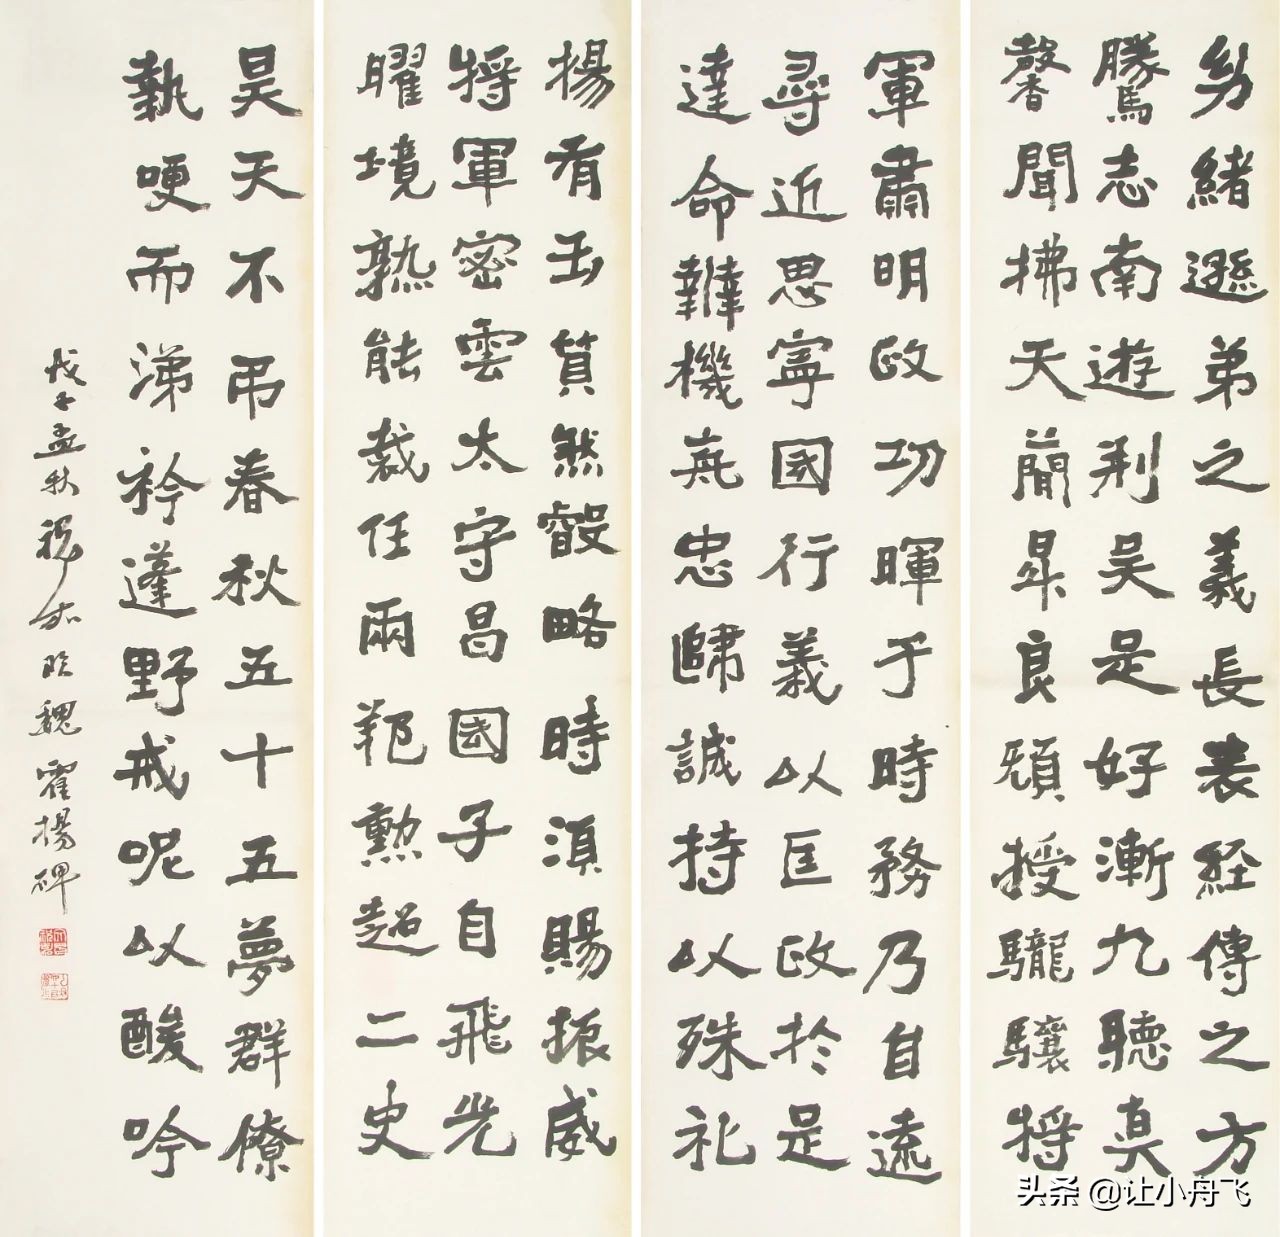 幼緒遜弟之義長裘經傳之方
騰馬志南遊荆吴是好漸九聽真
馨聞拂天蘭昇良頏授驪驤將
軍肅明政功暉于時務乃自遠
尋近思寧國行義以匡政於是
達命韡機燕忠歸誠持以殊礼
揚有玉質然叡略時須賜振威
將軍密雲太守昌國子自飛光
曜境熟能裁任兩範勲超二史
昊天不弔春秋五十五夢群僚
執哽而涕衿蓬野戒呢以酸吟
戊子孟秋 臨魏霍揚碑
头条 @让小舟飞